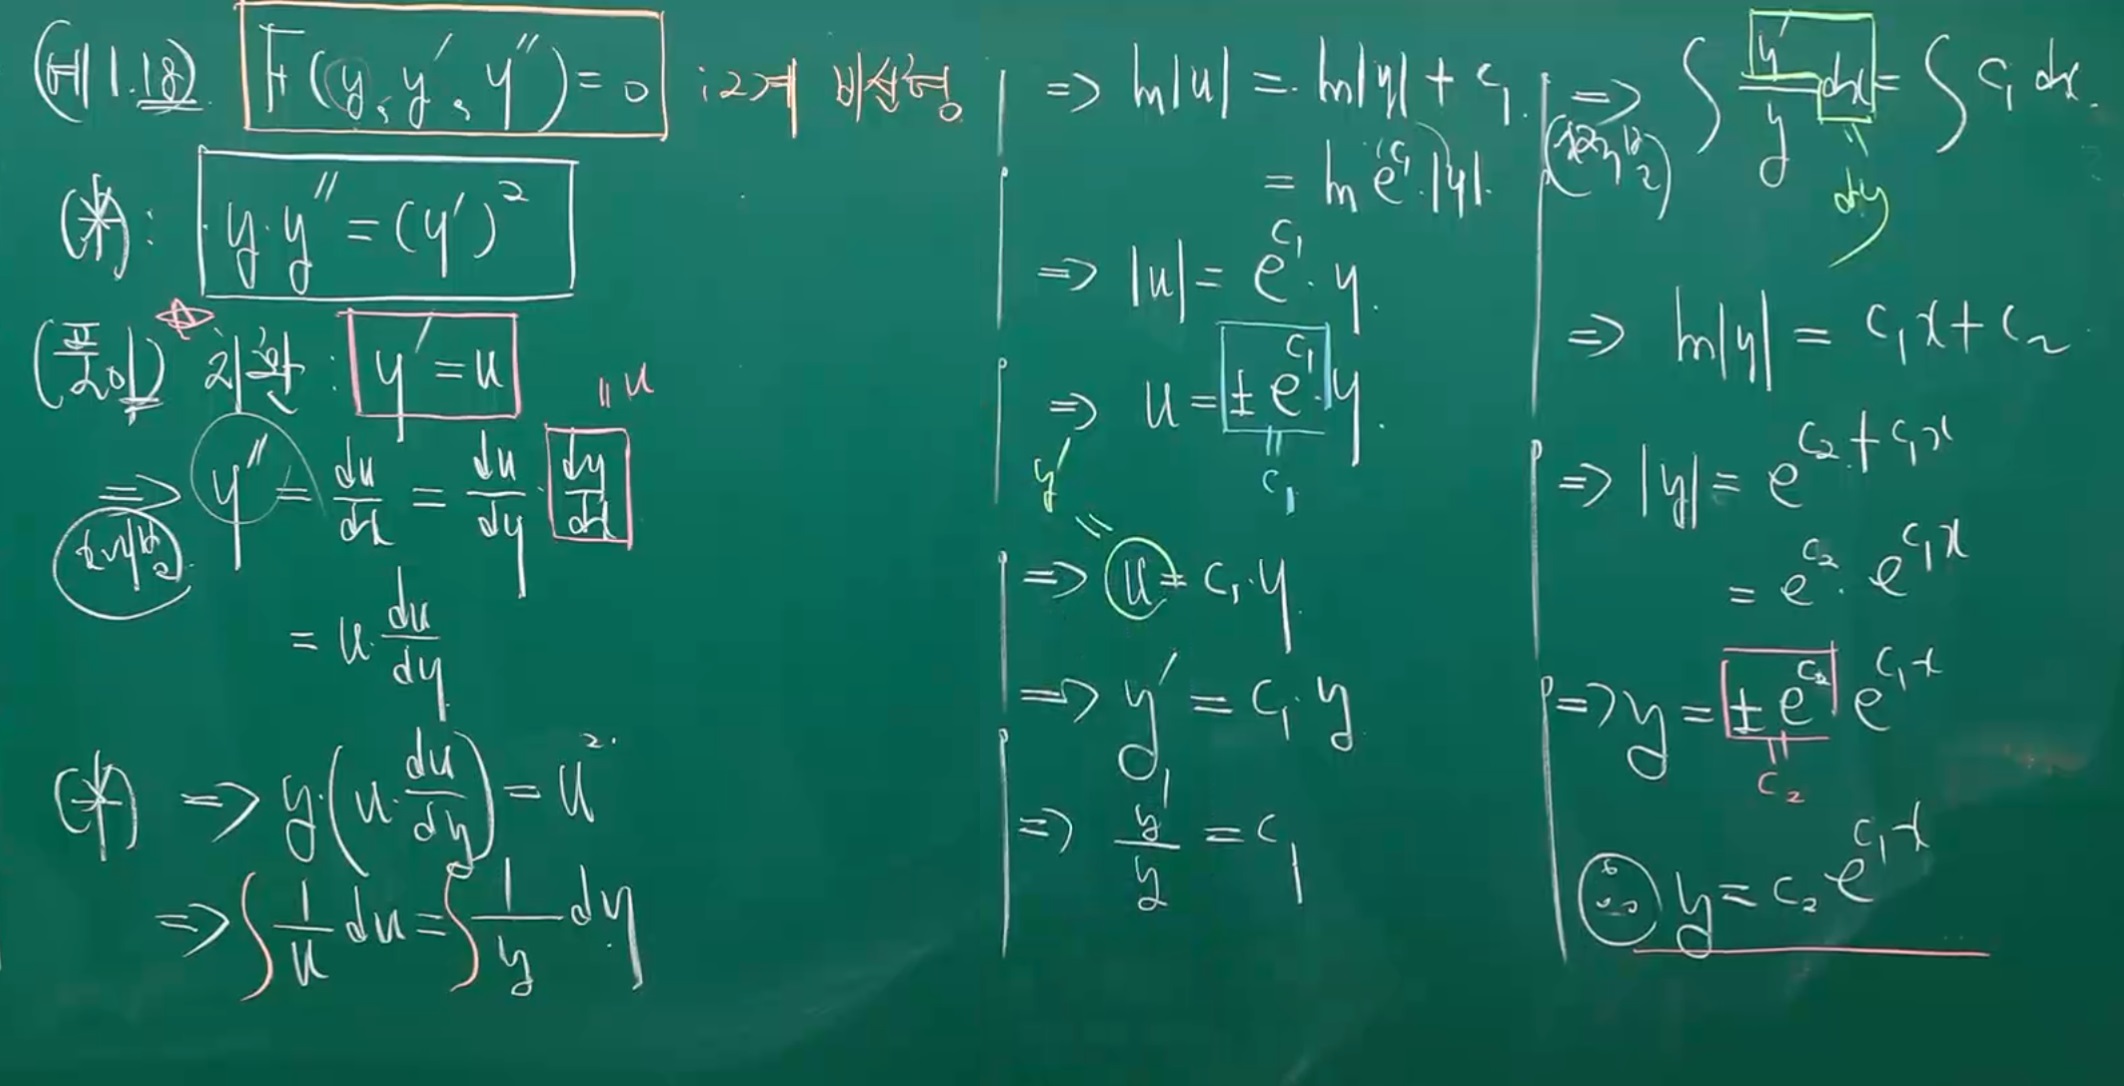 (예 1.18) F(y, y′, y″) = 0 : 2계 비선형
(*) : y·y″ = (y′)²
(풀이) ☆ 치환 : y′ = u
⇒ y″ = du/dx = du/dy · dy/dx = u
= u · du/dy
(*) ⇒ y·(u · du/dy) = u²
⇒ ∫ 1/u du = ∫ 1/y dy
⇒ ln|u| = ln|y| + c₁
= ln e^c₁·|y|
⇒ |u| = e^c₁ · y
⇒ u = ± e^c₁ · y
= c₁
y′ =
⇒ u = c₁·y
⇒ y′ = c₁·y
⇒ y′/y = c₁
⇒ ∫ y′/y dx = ∫ c₁ dx
= dy
⇒ ln|y| = c₁x + c₂
⇒ |y| = e^(c₂+c₁x)
= e^c₂ · e^(c₁x)
⇒ y = ± e^c₂ e^(c₁x)
= c₂
∴ y = c₂ e^(c₁x)